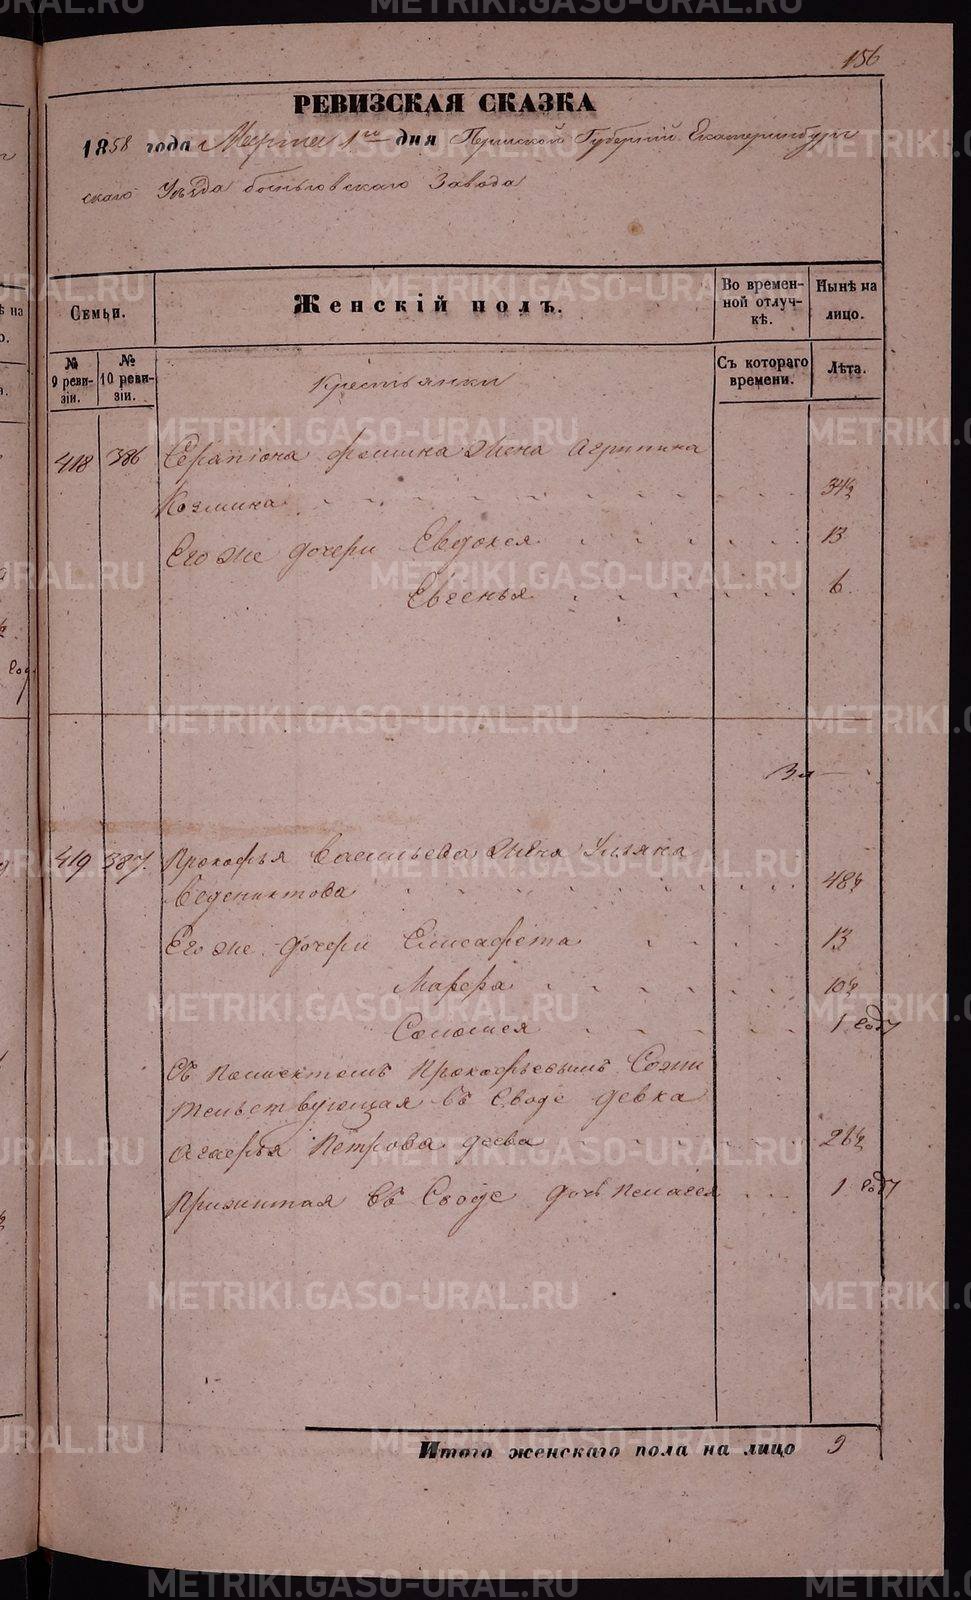 156
РЕВИЗСКАЯ СКАЗКА
1858 года Марта 1го дня Пермской Губерніи Екатеринбург
скаго Уѣзда Быньговскаго Завода
Семьи.
Женскій полъ.
Во времен-
ной отлуч-
кѣ.
Нынѣ на
лицо.
№
9 реви-
зіи.
№
10 реви-
зіи.
Съ котораго
времени.
Лѣта.
Крестьянки
418 386 Серапіона Фомина жена Агрипина
Козмина 34½
Его же дочери Евдокея 13
Евгенья 6
419 387. Прокофья Васильева жена Ульяна
Веденихтова 48½
Его же дочери Елисафета 13
Марфа 10½
Соломея 1 году
Съ Полиектомъ Прокофьевымъ Сожи
тельствующая въ Сводѣ девка
Агафья Петрова деева 26½
Прижитая въ Сводѣ дочь Пелагея 1 году
Итого женскаго пола на лицо 9
METRIKI.GASO-URAL.RU